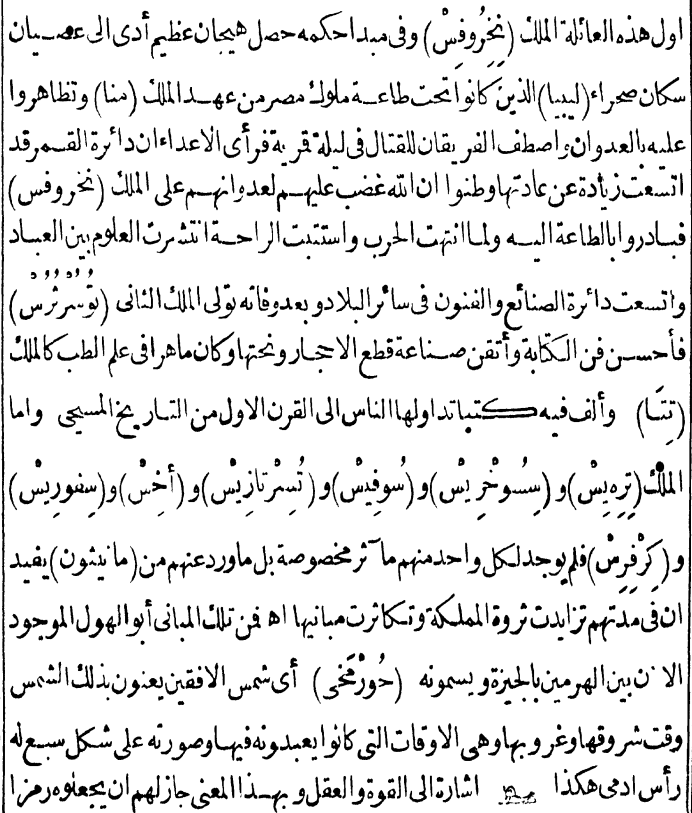 اول هذه العائلة الملك (نِخِرُوفِسْ) وفى مبدا حكمه حصل هيجان عظيم أدى الى عصيان
سكان صحراء (ليبيا) الذين كانوا تحت طاعة ملوك مصر من عهد الملك (منا) وتظاهروا
عليه بالعدوان واصطف الفريقان للقتال فى ليلة قمرية فرأى الاعداء ان دائرة القمر قد
اتسعت زيادة عن عادتها وظنوا ان الله غضب عليهم لعدوانهم على الملك (نخروفس)
فبادروا بالطاعة اليه ولما انتهت الحرب واستتبت الراحة انتشرت العلوم بين العباد
واتسعت دائرة الصنائع والفنون فى سائر البلاد وبعد وفاته تولى الملك الثانى (تُوسُرثُرُس)
فأحسن فن الكتابة وأتقن صناعة قطع الاحجار ونحتها وكان ماهرا فى علم الطب كالملك
(تِتَا) وألف فيه كتبا تداولها الناس الى القرن الاول من التاريخ المسيحى واما
الملك (تِرِيسْ) و (سِسُوخْرِيسْ) و (سُوفِيسْ) و (تُسِرْتَازِيسْ) و (أخِسْ) و (سِفُورِيسْ)
و (كِرْفِرِسْ) فلم يوجد لكل واحد منهم مآثر مخصوصة بل ماورد عنهم من (مانيثون) يفيد
ان فى مدتهم تزايدت ثروة المملكة وتكاثرت مبانيها اه فمن تلك المبانى أبو الهول الموجود
الآن بين الهرمين بالجيزة ويسمونه (حُورْمَخِى) أى شمس الافقين يعنون بذلك الشمس
وقت شروقها وغروبها وهى الاوقات التى كانوا يعبدونه فيها وصورته على شكل سبع له
رأس ادمى هكذا اشارة الى القوة والعقل وبهذا المعنى جاز لهم ان يجعلوه رمزا